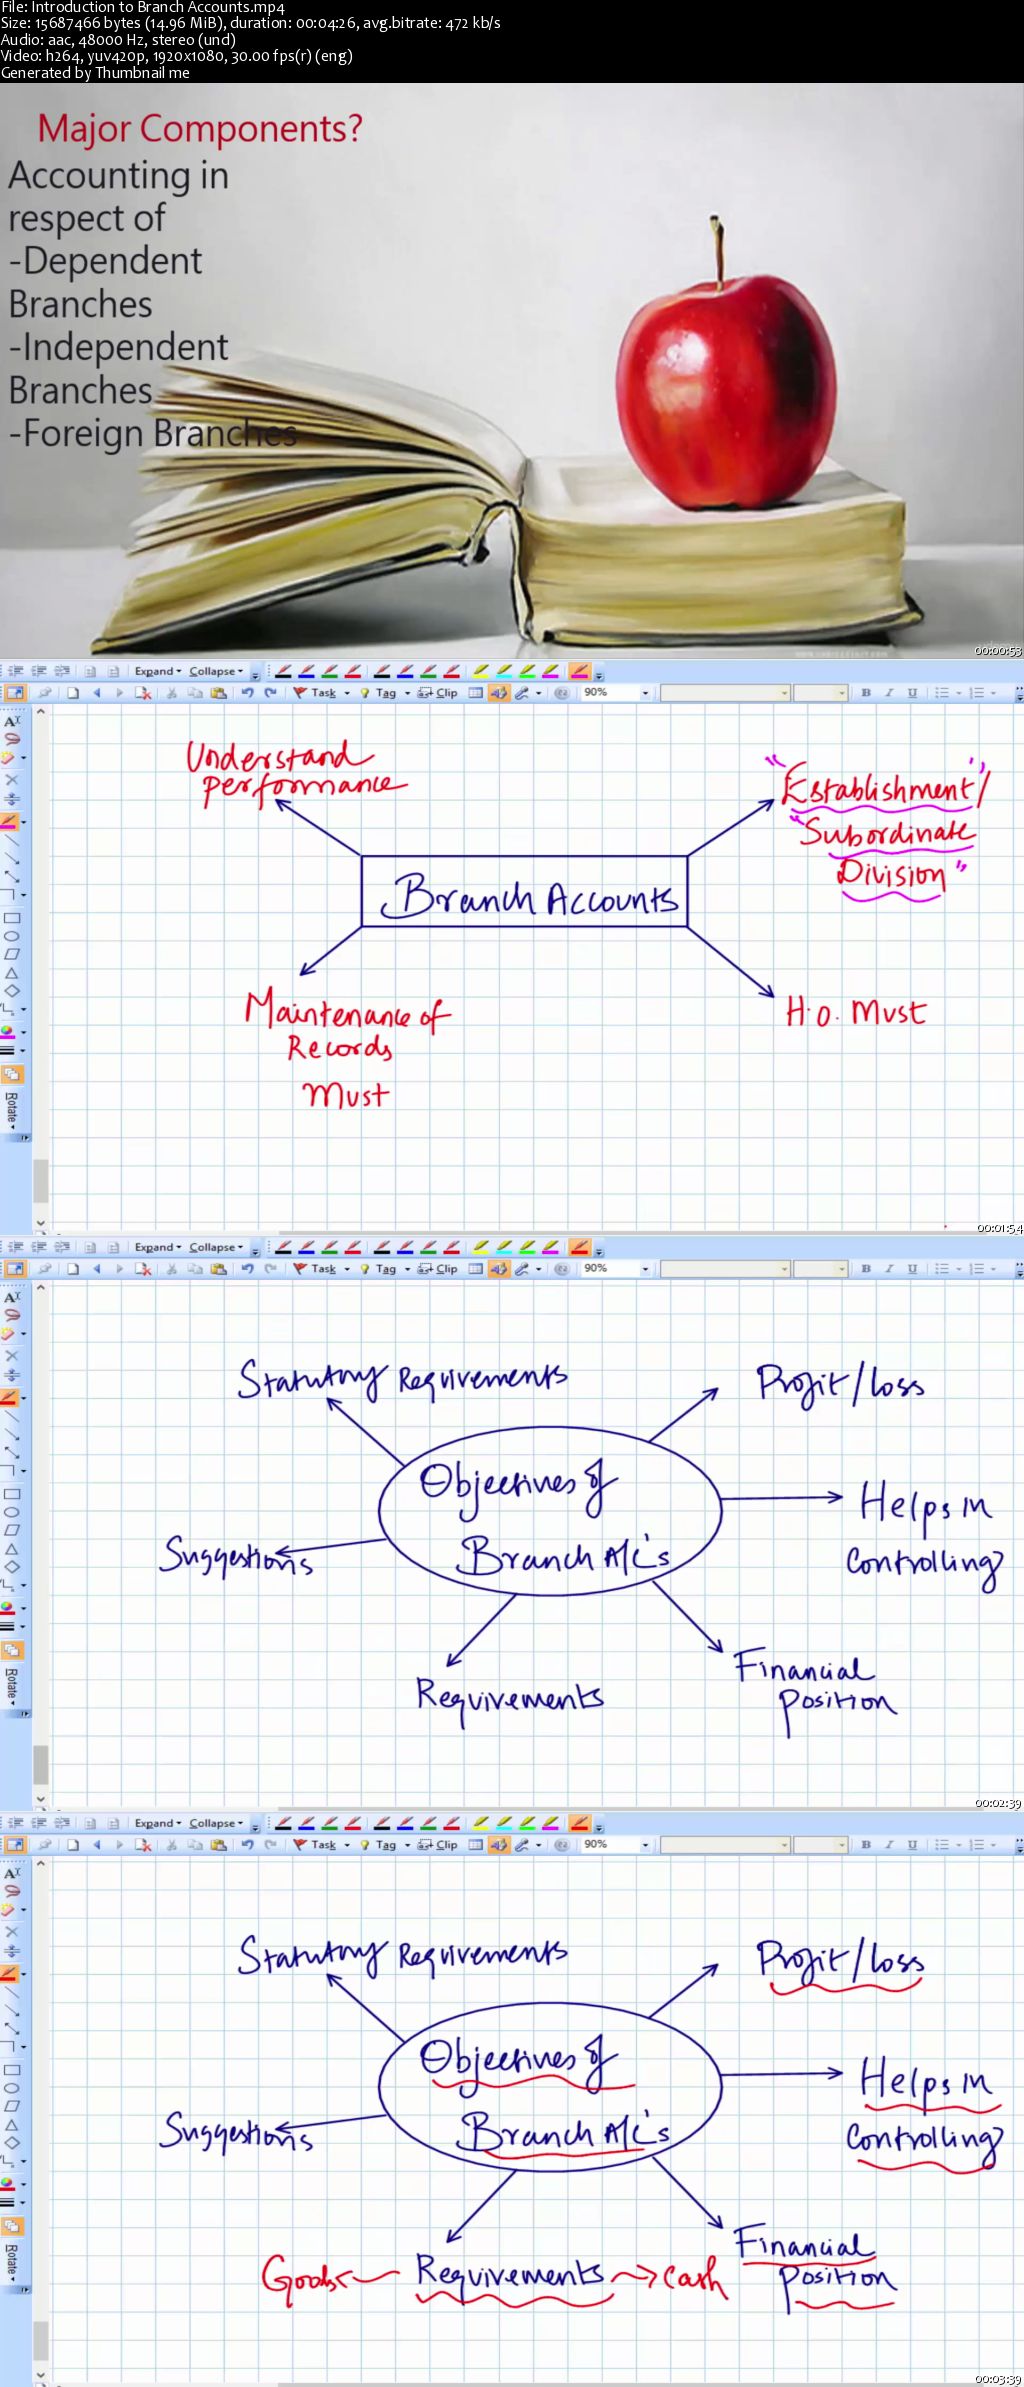 File: Introduction to Branch Accounts.mp4
Size: 15687466 bytes (14.96 MiB), duration: 00:04:26, avg.bitrate: 472 kb/s
Audio: aac, 48000 Hz, stereo (und)
Video: h264, yuv420p, 1920x1080, 30.00 fps(r) (eng)
Generated by Thumbnail me
Major Components?
Accounting in
respect of
-Dependent
Branches
-Independent
Branches
-Foreign Branches
00:00:53
Expand Collapse
Task Tag Clip 90% B I U
Rotate
Understand
Performance
"Establishment"/
"Subordinate
Division"
Branch Accounts
Maintenance of
Records
Must
H.O. Must
00:01:54
Expand Collapse
Task Tag Clip 90% B I U
Rotate
Statutory Requirements
Profit/Loss
Objectives of
Branch A/c's
Helps in
Controlling
Suggestions
Requirements
Financial
Position
00:02:39
Expand Collapse
Task Tag Clip 90% B I U
Rotate
Statutory Requirements
Profit/Loss
Objectives of
Branch A/c's
Helps in
Controlling
Suggestions
Goods Requirements Cash
Financial
Position
00:03:39